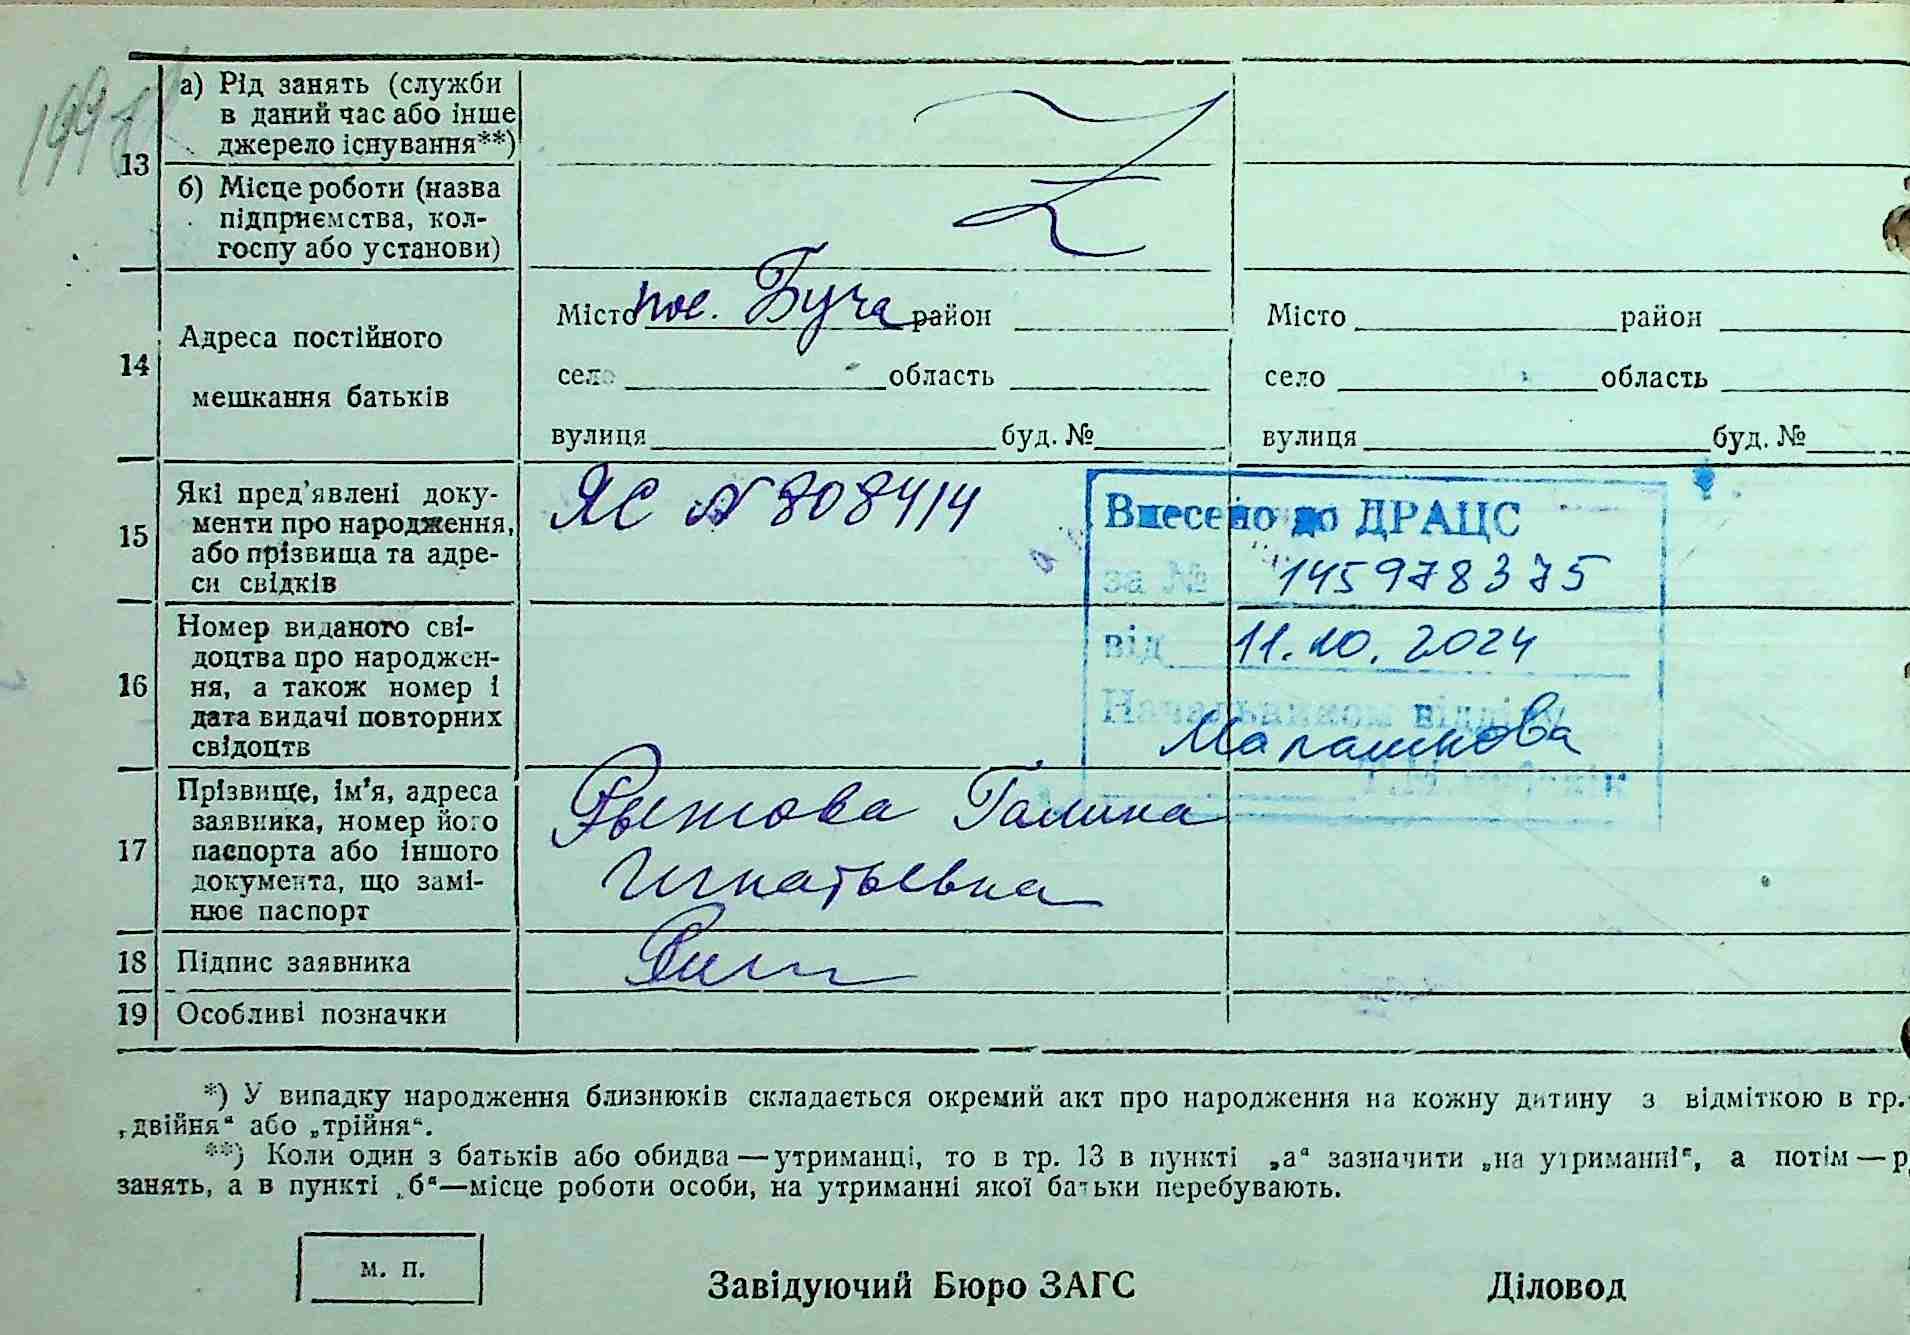 199
а) Рід занять (служби
в даний час або інше
джерело існування**)
13
б) Місце роботи (назва
підприємства, кол-
госпу або установи)
14
Адреса постійного
мешкання батьків
Місто пос. Буча район
село область
вулиця буд. №
Місто район
село область
вулиця буд. №
15
Які пред'явлені доку-
менти про народження,
або прізвища та адре-
си свідків
ЯС № 808414
Внесено до ДРАЦС
за № 145978375
від 11.10.2024
Начальником відділу
16
Номер виданого сві-
доцтва про народжен-
ня, а також номер і
дата видачі повторних
свідоцтв
17
Прізвище, ім'я, адреса
заявника, номер його
паспорта або іншого
документа, що замі-
нює паспорт
Рыжова Галина
Игнатьевна
18 Підпис заявника
19 Особливі позначки
*) У випадку народження близнюків складається окремий акт про народження на кожну дитину з відміткою в гр.
„двійня“ або „трійня“.
**) Коли один з батьків або обидва — утриманці, то в гр. 13 в пункті „а“ зазначити „на утриманні“, а потім — р
занять, а в пункті „б“—місце роботи особи, на утриманні якої батьки перебувають.
м. п.
Завідуючий Бюро ЗАГС
Діловод